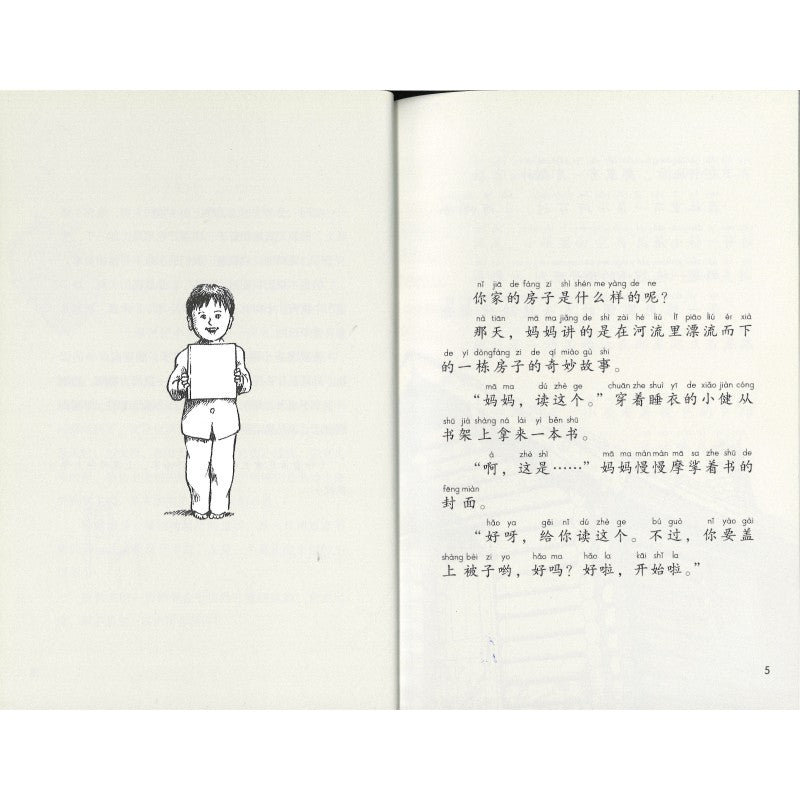 nǐ jiā de fáng zi shì shén me yàng de ne
你家的房子是什么样的呢？
nà tiān mā ma jiǎng de shì zài hé liú lǐ piāo liú ér xià
那天，妈妈讲的是在河流里漂流而下
de yí dòng fáng zi de qí miào gù shi
的一栋房子的奇妙故事。
mā ma dú zhè ge chuān zhe shuì yī de xiǎo jiàn cóng
“妈妈，读这个。”穿着睡衣的小健从
shū jià shàng ná lái yì běn shū
书架上拿来一本书。
á zhè shì mā ma màn màn mā sa zhe shū de
“啊，这是……”妈妈慢慢摩挲着书的
fēng miàn
封面。
hǎo ya gěi nǐ dú zhè ge bú guò nǐ yào gài
“好呀，给你读这个。不过，你要盖
shàng bèi zi yo hǎo ma hǎo la kāi shǐ la
上被子哟，好吗？好啦，开始啦。”
5